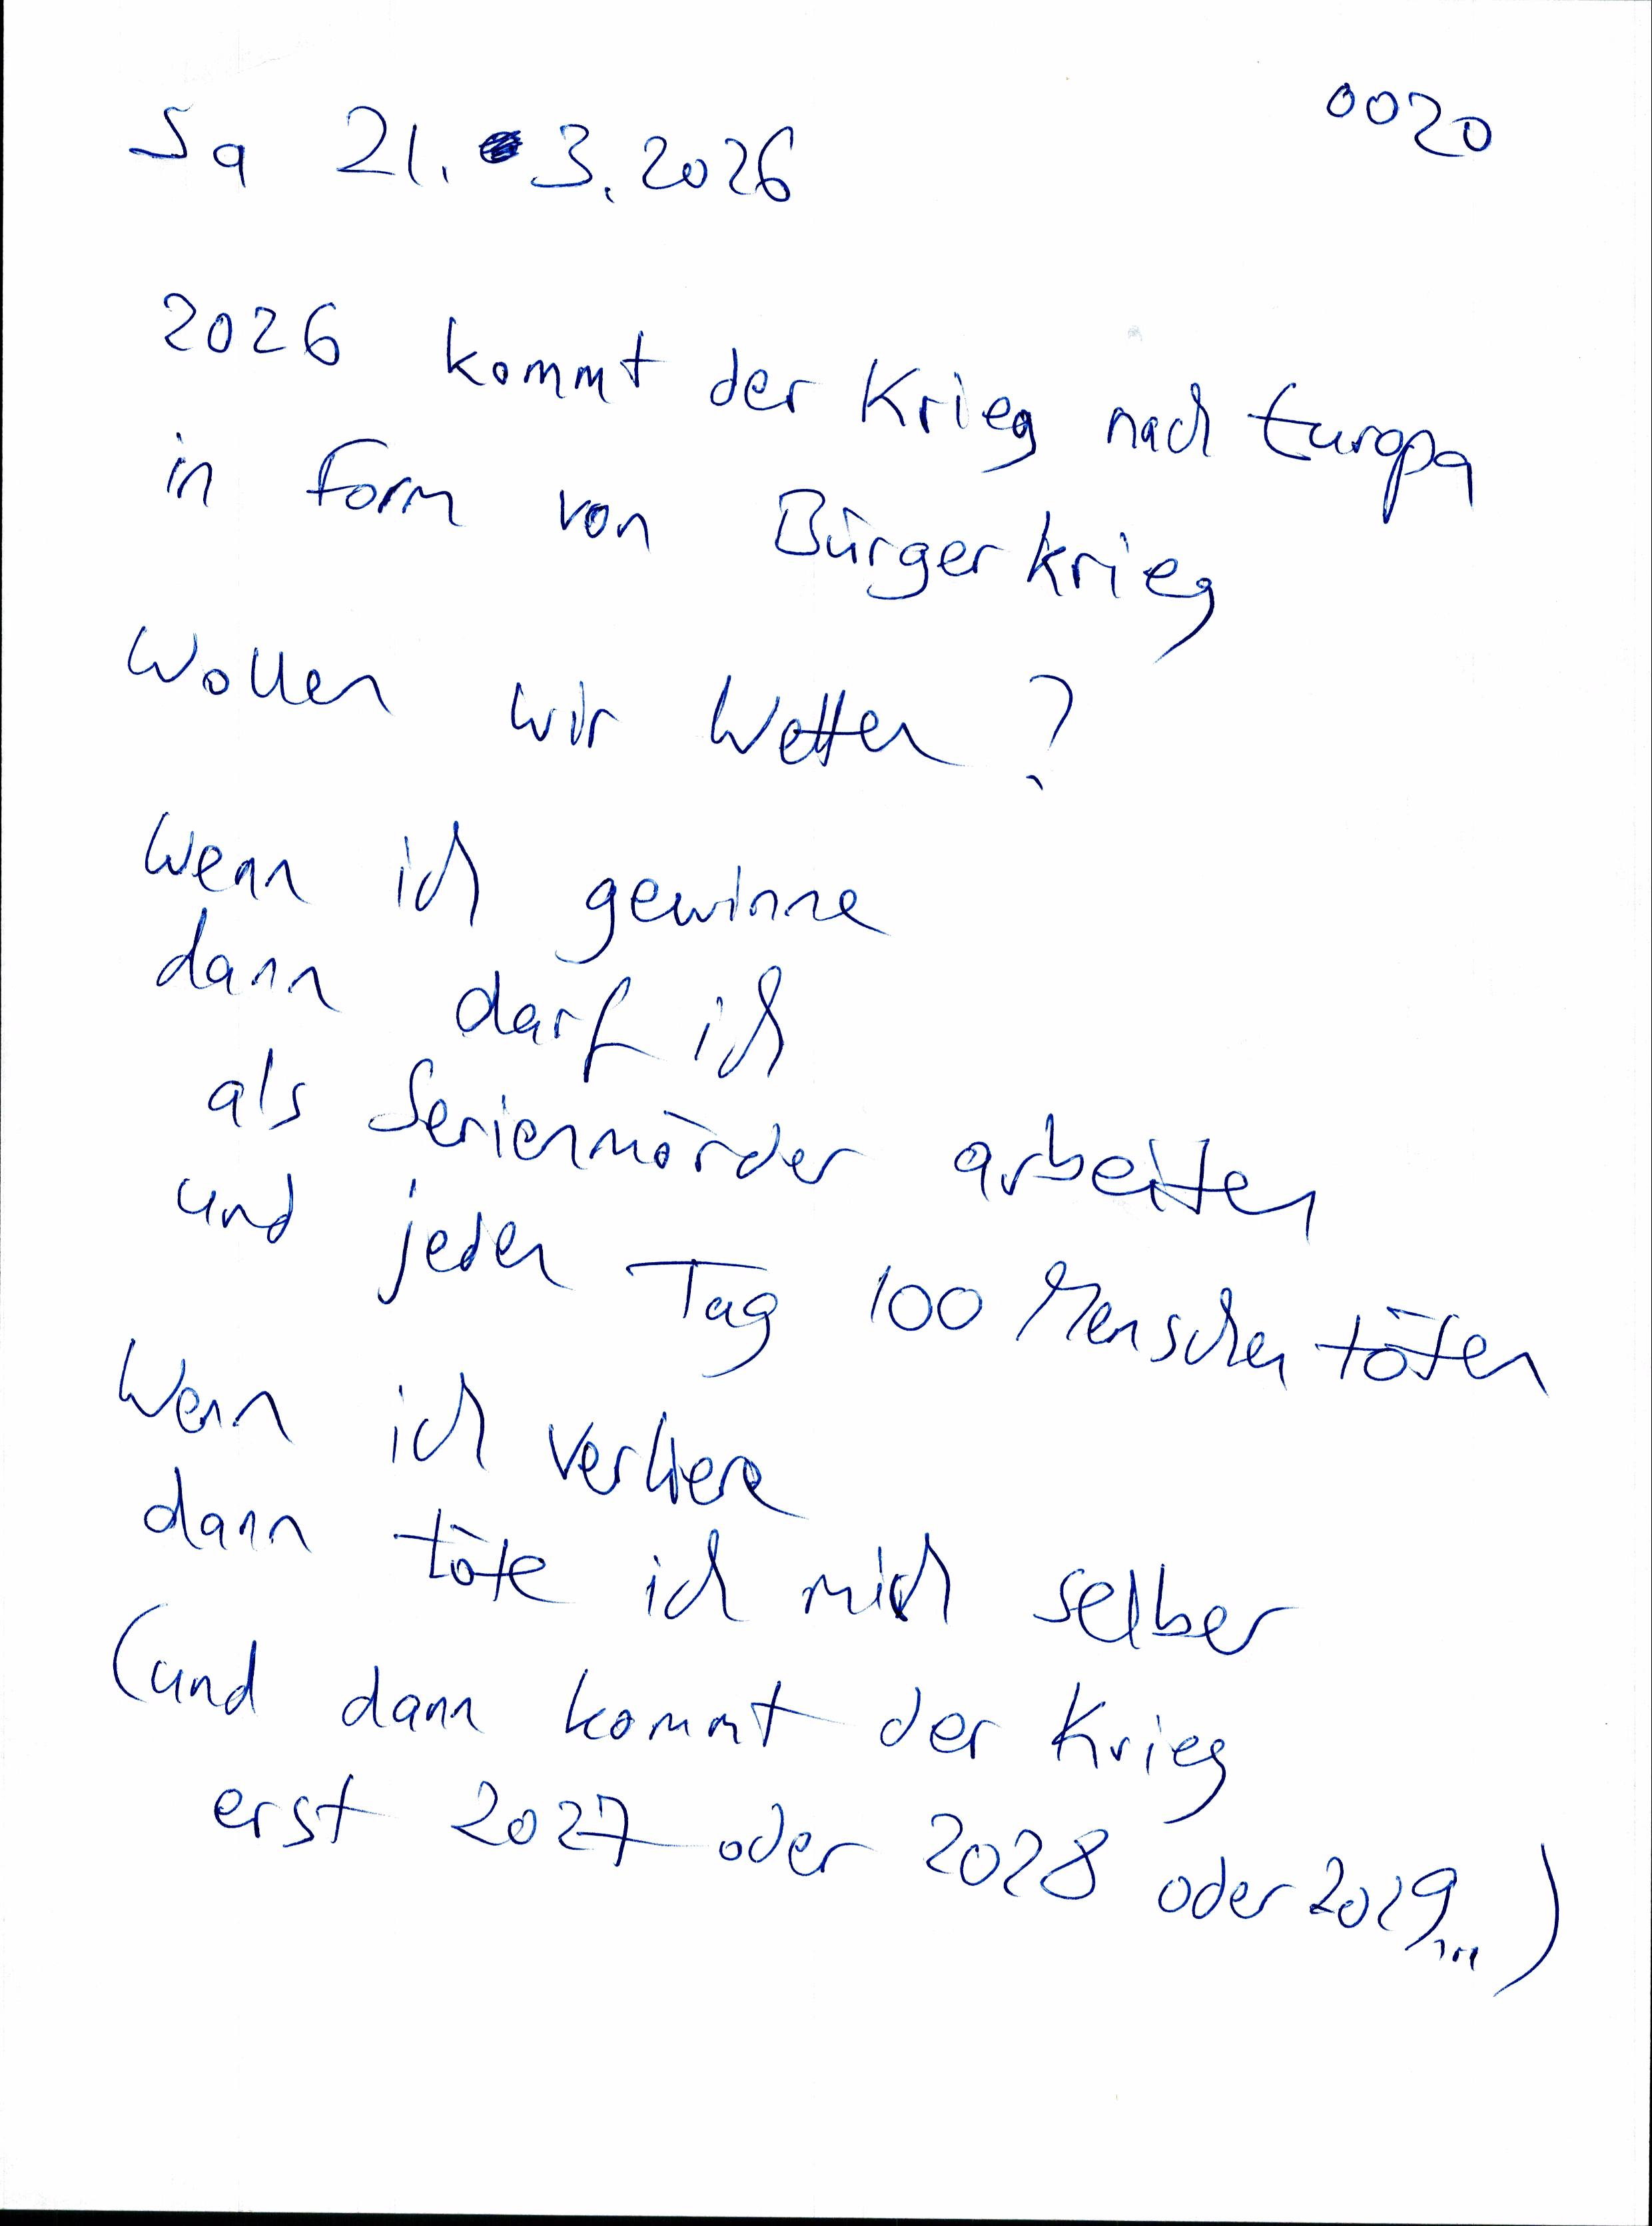 0020
Sa 21. 3. 2026
2026 kommt der Krieg nach Europa
in Form von Bürgerkrieg
Wollen wir Wetten?
Wenn ich gewinne
dann darf ich
als Serienmörder arbeiten
und jeden Tag 100 Menschen töten
Wenn ich verliere
dann töte ich mich selber
(und dann kommt der Krieg
erst 2027 oder 2028 oder 2029...)